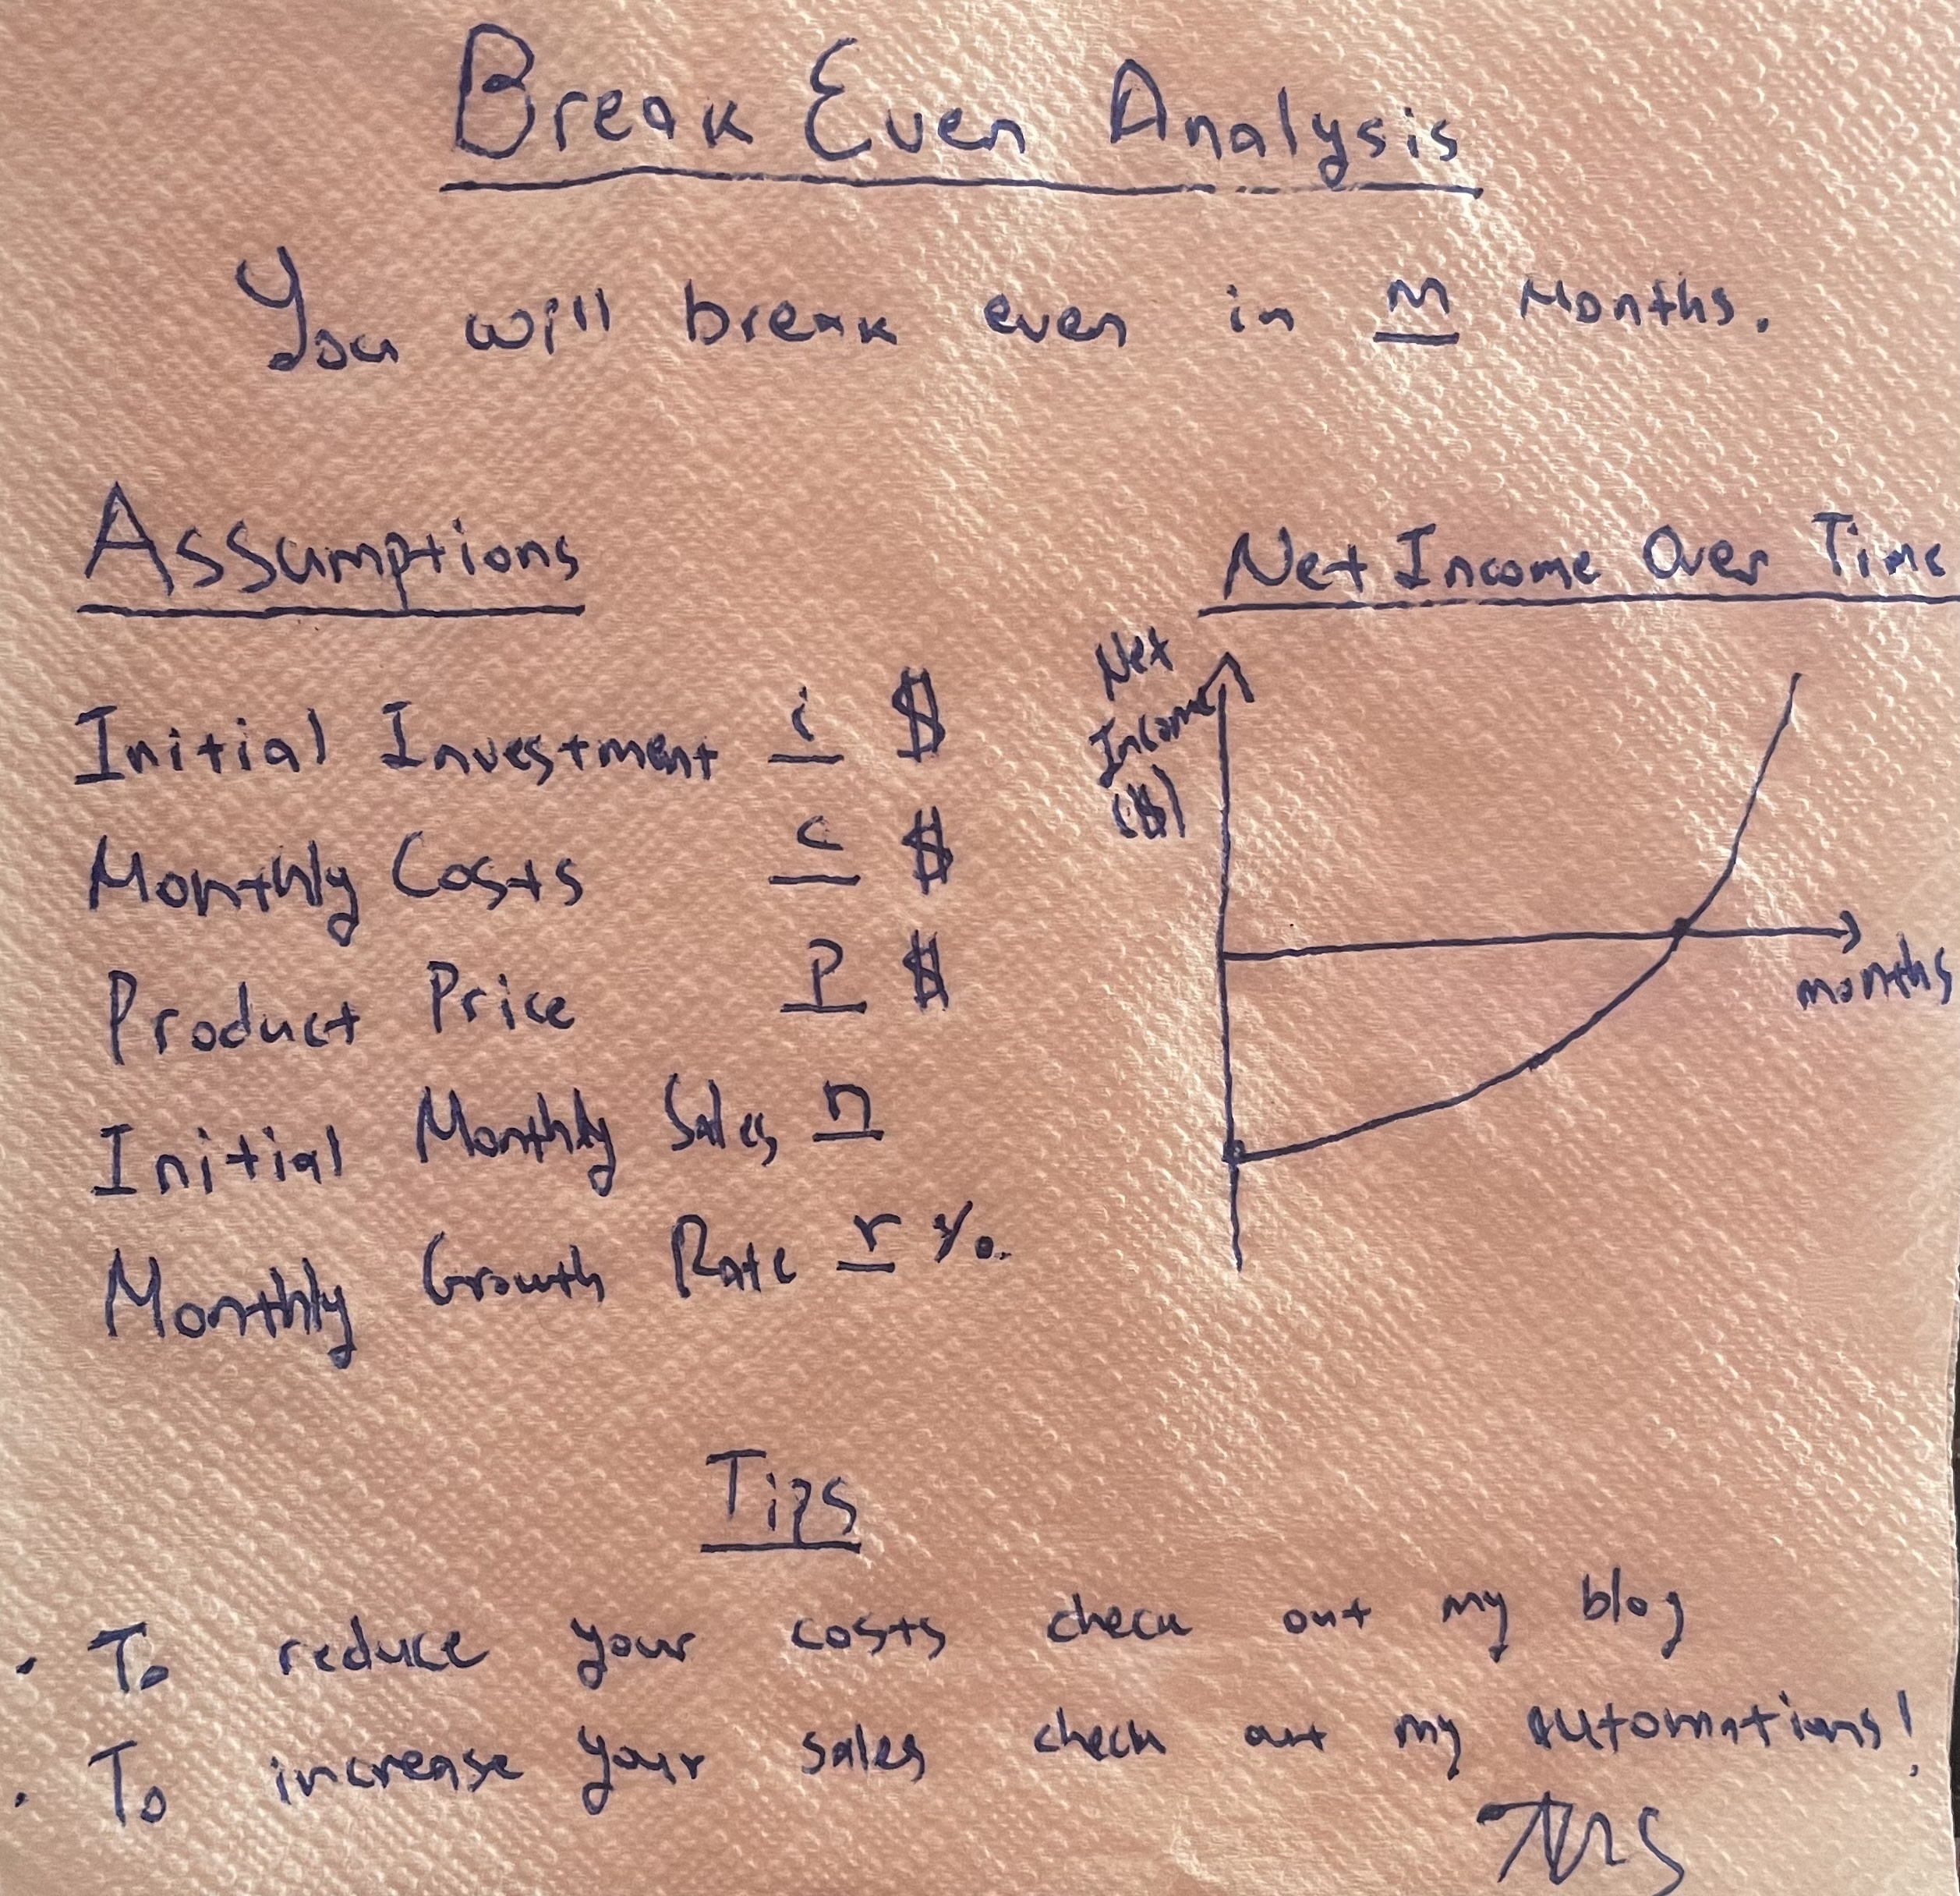 Break Even Analysis
You will break even in m Months.
Assumptions
Initial Investment i $
Monthly Costs c $
Product Price P $
Initial Monthly Sales n
Monthly Growth Rate r %.
Net Income Over Time
Net
Income
($)
months
Tips
• To reduce your costs check out my blog
• To increase your sales check out my automations!